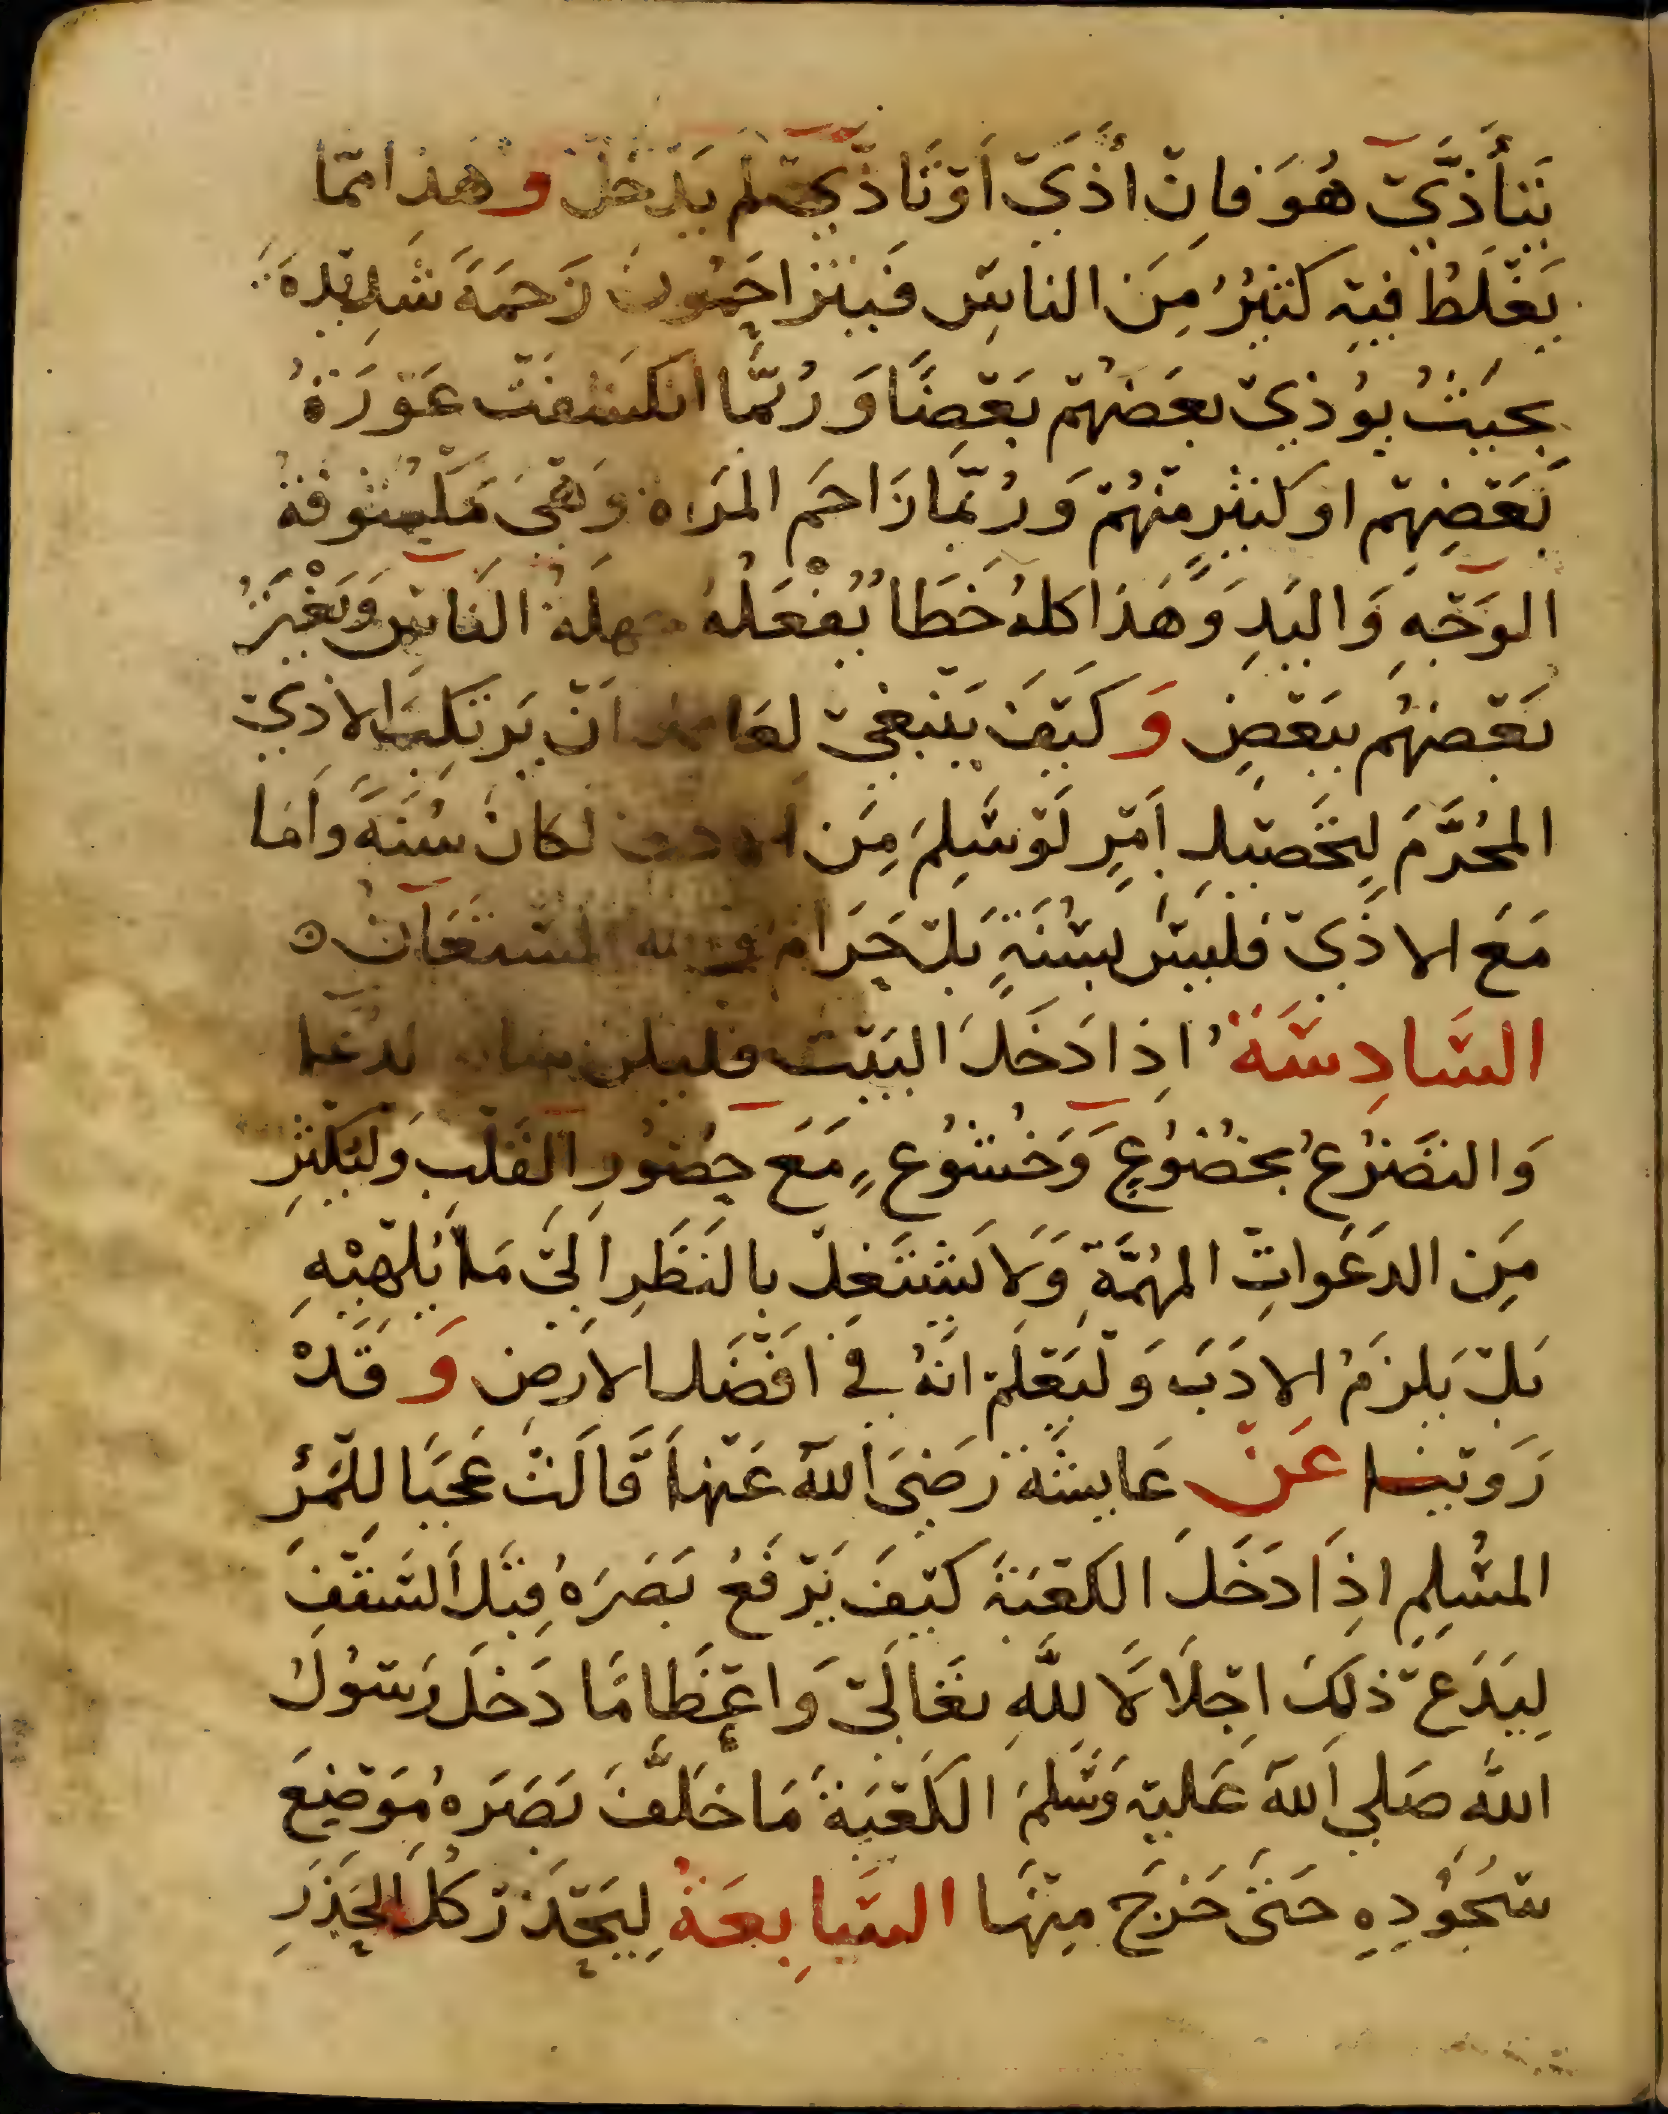 يَتَأَذَّيْ هُوَ فاِنْ أذَيْ اَوْ تَاَذَّيْ لَم يَدْخُلْ وَهَذا مِمّا
يَغْلَطُ فِيْهِ كَثيْرٌ مِنَ الناسِ فَيَتَزاحَمُونَ زَحمَةً شَدِيْدَةً
بِحَيْثُ يوُذِيْ بعَضُهُمْ بَعْضًا وَرُبَّمَا انكَشَفَتْ عَوْرَةُ
بَعْضِهِمْ او كثيْرٍ مِنْهُمْ وَرُبَّمَا زَاحَمَ المَرْاةَ وَهْيَ مَكْشُوفَةُ
الوَجْهِ وَاليَدِ وَهَذا كلهُ خَطَأٌ يَفْعَلُهُ جهلَةُ الناسِ وَيَغْتَرُّ
بَعْضهُم ببَعْضٍ وَكَيْفَ يَنْبغيْ لعَاقل اَنْ يَرتَكِبَ الاذيْ
المُحَرَّمَ لِتَحْصيْلِ اَمْرٍ لَوْ سَلِمَ مِنَ الاذي لكانَ سُنَّةً وَاَما
مَعَ الاذَيْ فليْسَ بسُنَّةٍ بَلْ حَرَامٌ والله المُسْتَعَانُ ه
السَّادِسَةُ اِذا دَخَلَ البَيْتَ فليكن شانه الدعَا
وَالتضَرُّعُ بخضُوُعٍ وَخُشُوُعٍ مَعَ حضُورِ القَلْبِ وَليُكثِرْ
مِنَ الدَعَواتِ المهُمَّةِ وَلاَ يَشْتَغِلْ بالنَظَرِ اِليَ مَا يُلْهِيْهِ
بَلْ يَلزَمُ الادَبَ وَليَعْلَمْ انَّهُ في افْضَل الارَضِ وَقَدْ
رَوَيْنا عَنْ عَايشَةَ رَضيَ اللَّه عَنْهَا قَالَتْ عَجَبًا لِلمَرْءِ
المسُلِمِ اِذَا دَخَلَ الكَعْبَةَ كَيْفَ يَرْفَعُ بَصَرَهُ قِبَلَ السَّقْفِ
لِيَدَعْ ذلَكَ اجْلاَلاً للَّهِ تعَالَيْ وَاعْظَامًا دَخَلَ رَسُوُلُ
اللَّه صَلي اللَّه عَليْهِ وَسَّلمَ الكَعْبَةَ مَا خَلَّفَ بَصَرَهُ مَوْضِعَ
سُجُوُدِهِ حَتيَ خَرَجَ مِنْهَا السَّابِعَةُ لِيَحْذَرْ كُلَّ الحَذَرِ